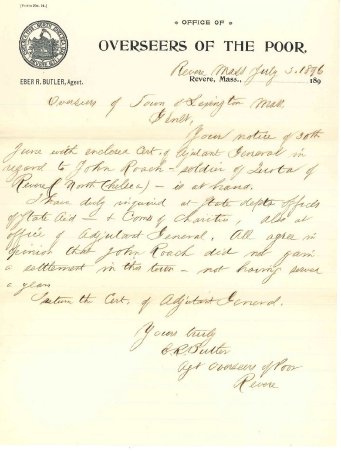 OFFICE OF
OVERSEERS OF THE POOR,
EBER R. BUTLER, Agent.
Revere, Mass., 189
Revere Mass July 3. 1896
Overseers of Town of Lexington Mass.
Gents,
Your notice of 30th
June with enclosed Cert. of Adjutant General in
regard to John Roach - soldier of Quota of
Revere (North Chelsea) - is at hand.
I have duly inquired at State depts offices
of State Aid - & Coms of Charities, also at
office of Adjutant General. All agree in
opinion that John Roach did not gain
a settlement in this town - not having served
a year.
I return the Cert. of Adjutant General.
Yours truly
E. R. Butler
Agt Overseers of Poor
Revere